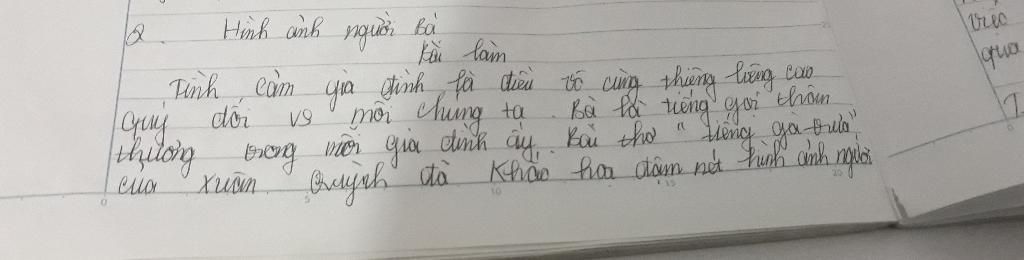 2. Hình ảnh người Bà
Bài làm
Tình cảm gia đình là điều vô cùng thiêng liêng cao
quý đối vs mỗi chúng ta. Bà là tiếng gọi thân
thương trong mỗi gia đình ấy. Bài thơ "tiếng gà trưa"
của Xuân Quỳnh đã khắc họa đậm nét hình ảnh người
việc
qua